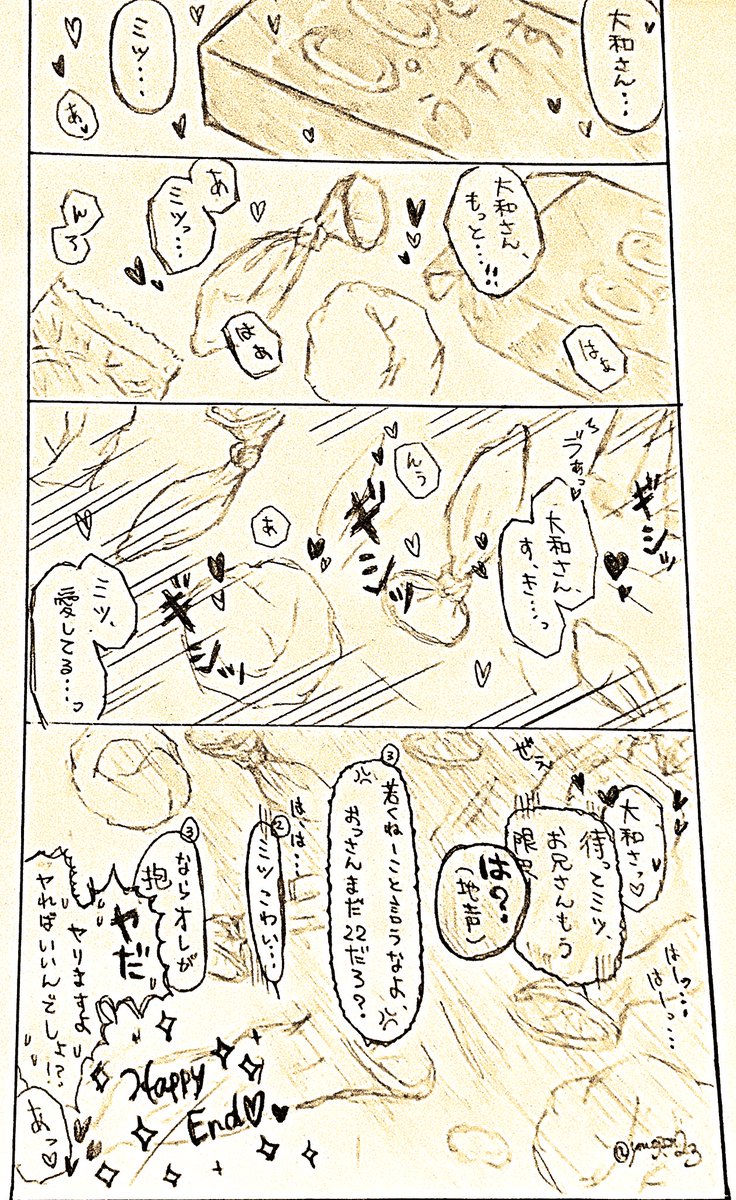 大和さん…
ミツ…
あ
大和さん、
もっと…!!
はぁ
あ
ミツっ…
はぁ
ん
ギシッ
大和さん、
す、き…っ
んぅ
ギシッ
あ
ギシッ
ミツ、
愛してる…っ
大和さっ
待ってミツ、
お兄さんもう
限界
は?
(地声)
はーっ…
はーっ…
ぜぇ
③
若くねーこと言うなよ、
おっさんまだ22だろ?
は、は…
②
ミツこわい…
③
ならオレが
抱
ヤだ
ヤりますよ
ヤればいいんでしょ!?
あっ
Happy
End♡